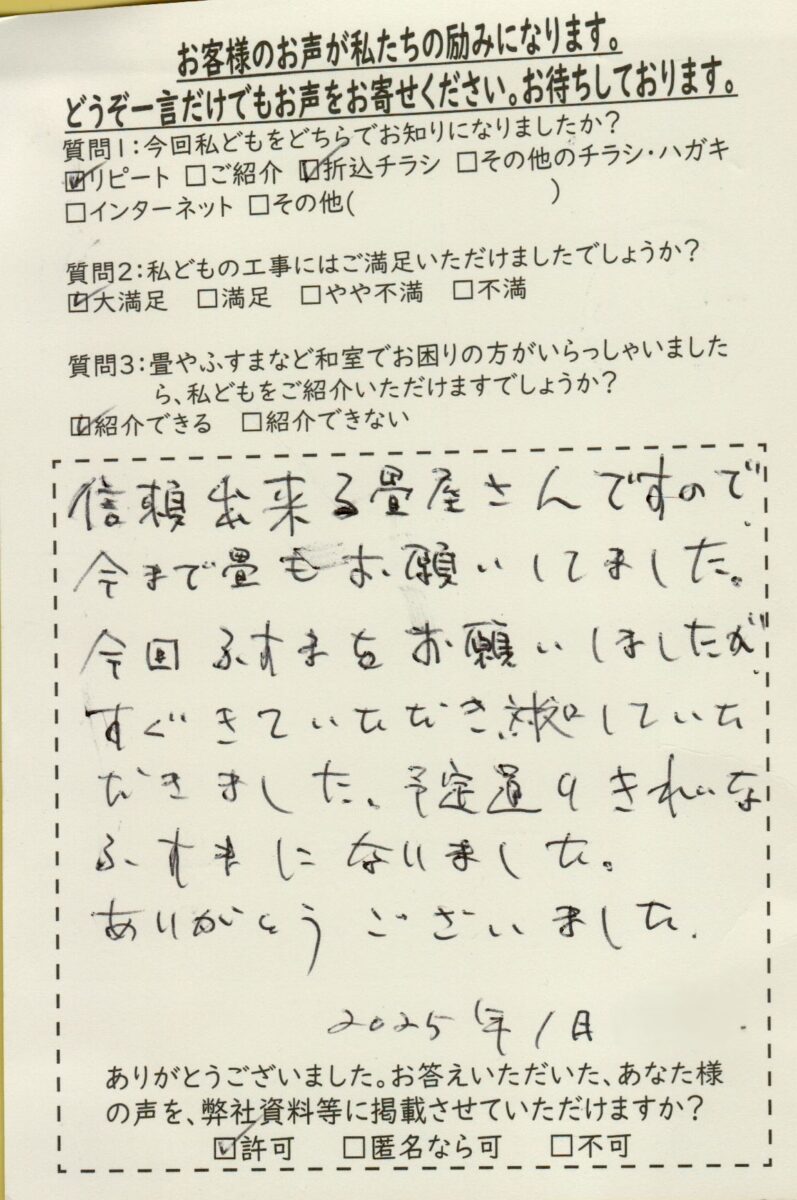 お客様のお声が私たちの励みになります。
どうぞ一言だけでもお声をお寄せください。お待ちしております。
質問1:今回私どもをどちらでお知りになりましたか?
☑リピート □ご紹介 ☑折込チラシ □その他のチラシ・ハガキ
□インターネット □その他( )
質問2:私どもの工事にはご満足いただけましたでしょうか?
☑大満足 □満足 □やや不満 □不満
質問3:畳やふすまなど和室でお困りの方がいらっしゃいました
ら、私どもをご紹介いただけますでしょうか?
☑紹介できる □紹介できない
信頼出来る畳屋さんですので、
今まで畳もお願いしてました。
今回ふすまをお願いしましたが、
すぐきていただき、対応していた
だきました。予定通りきれいな
ふすまになりました。
ありがとうございました。
2025年1月
ありがとうございました。お答えいただいた、あなた様
の声を、弊社資料等に掲載させていただけますか?
☑許可 □匿名なら可 □不可